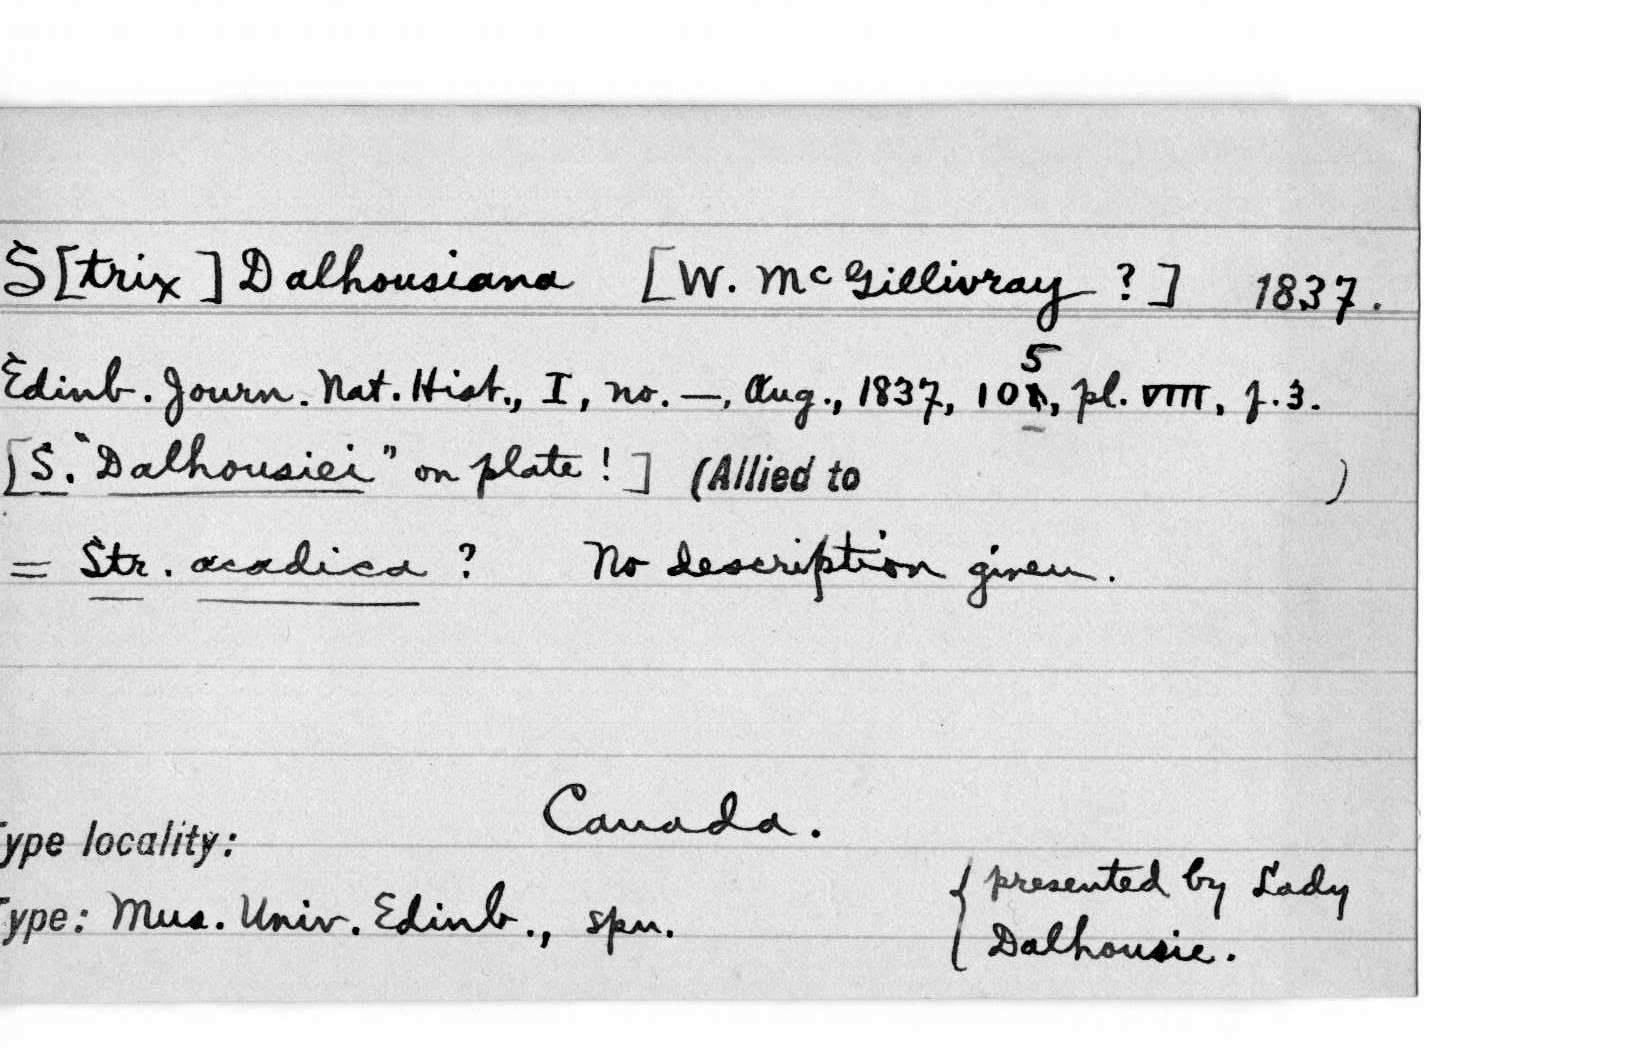 S[trix] Dalhousiana [W. McGillivray ?] 1837.
Edinb. Journ. Nat. Hist., I, no. —, Aug., 1837, 105, pl. VIII, f. 3.
[S. "Dalhousiei" on plate!] (Allied to )
= Str. acadica ? No description given.
Canada.
Type locality:
Type: Mus. Univ. Edinb., spn. { presented by Lady
Dalhousie.